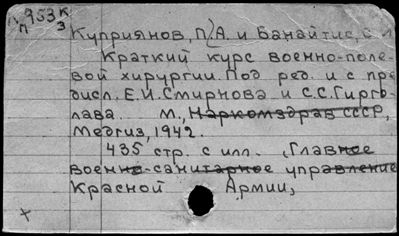 953 К
П З
Куприянов, П.А. и Банайтис, С
Краткий курс военно-поле-
вой хирургии. Под ред. и с пре
дисл. Е.И. Смирнова и С.С. Гирго-
лава. М., Наркомздрав СССР,
Медгиз, 1942.
435 стр. с илл. (Главное
военно-санитарное управление
Красной Армии)